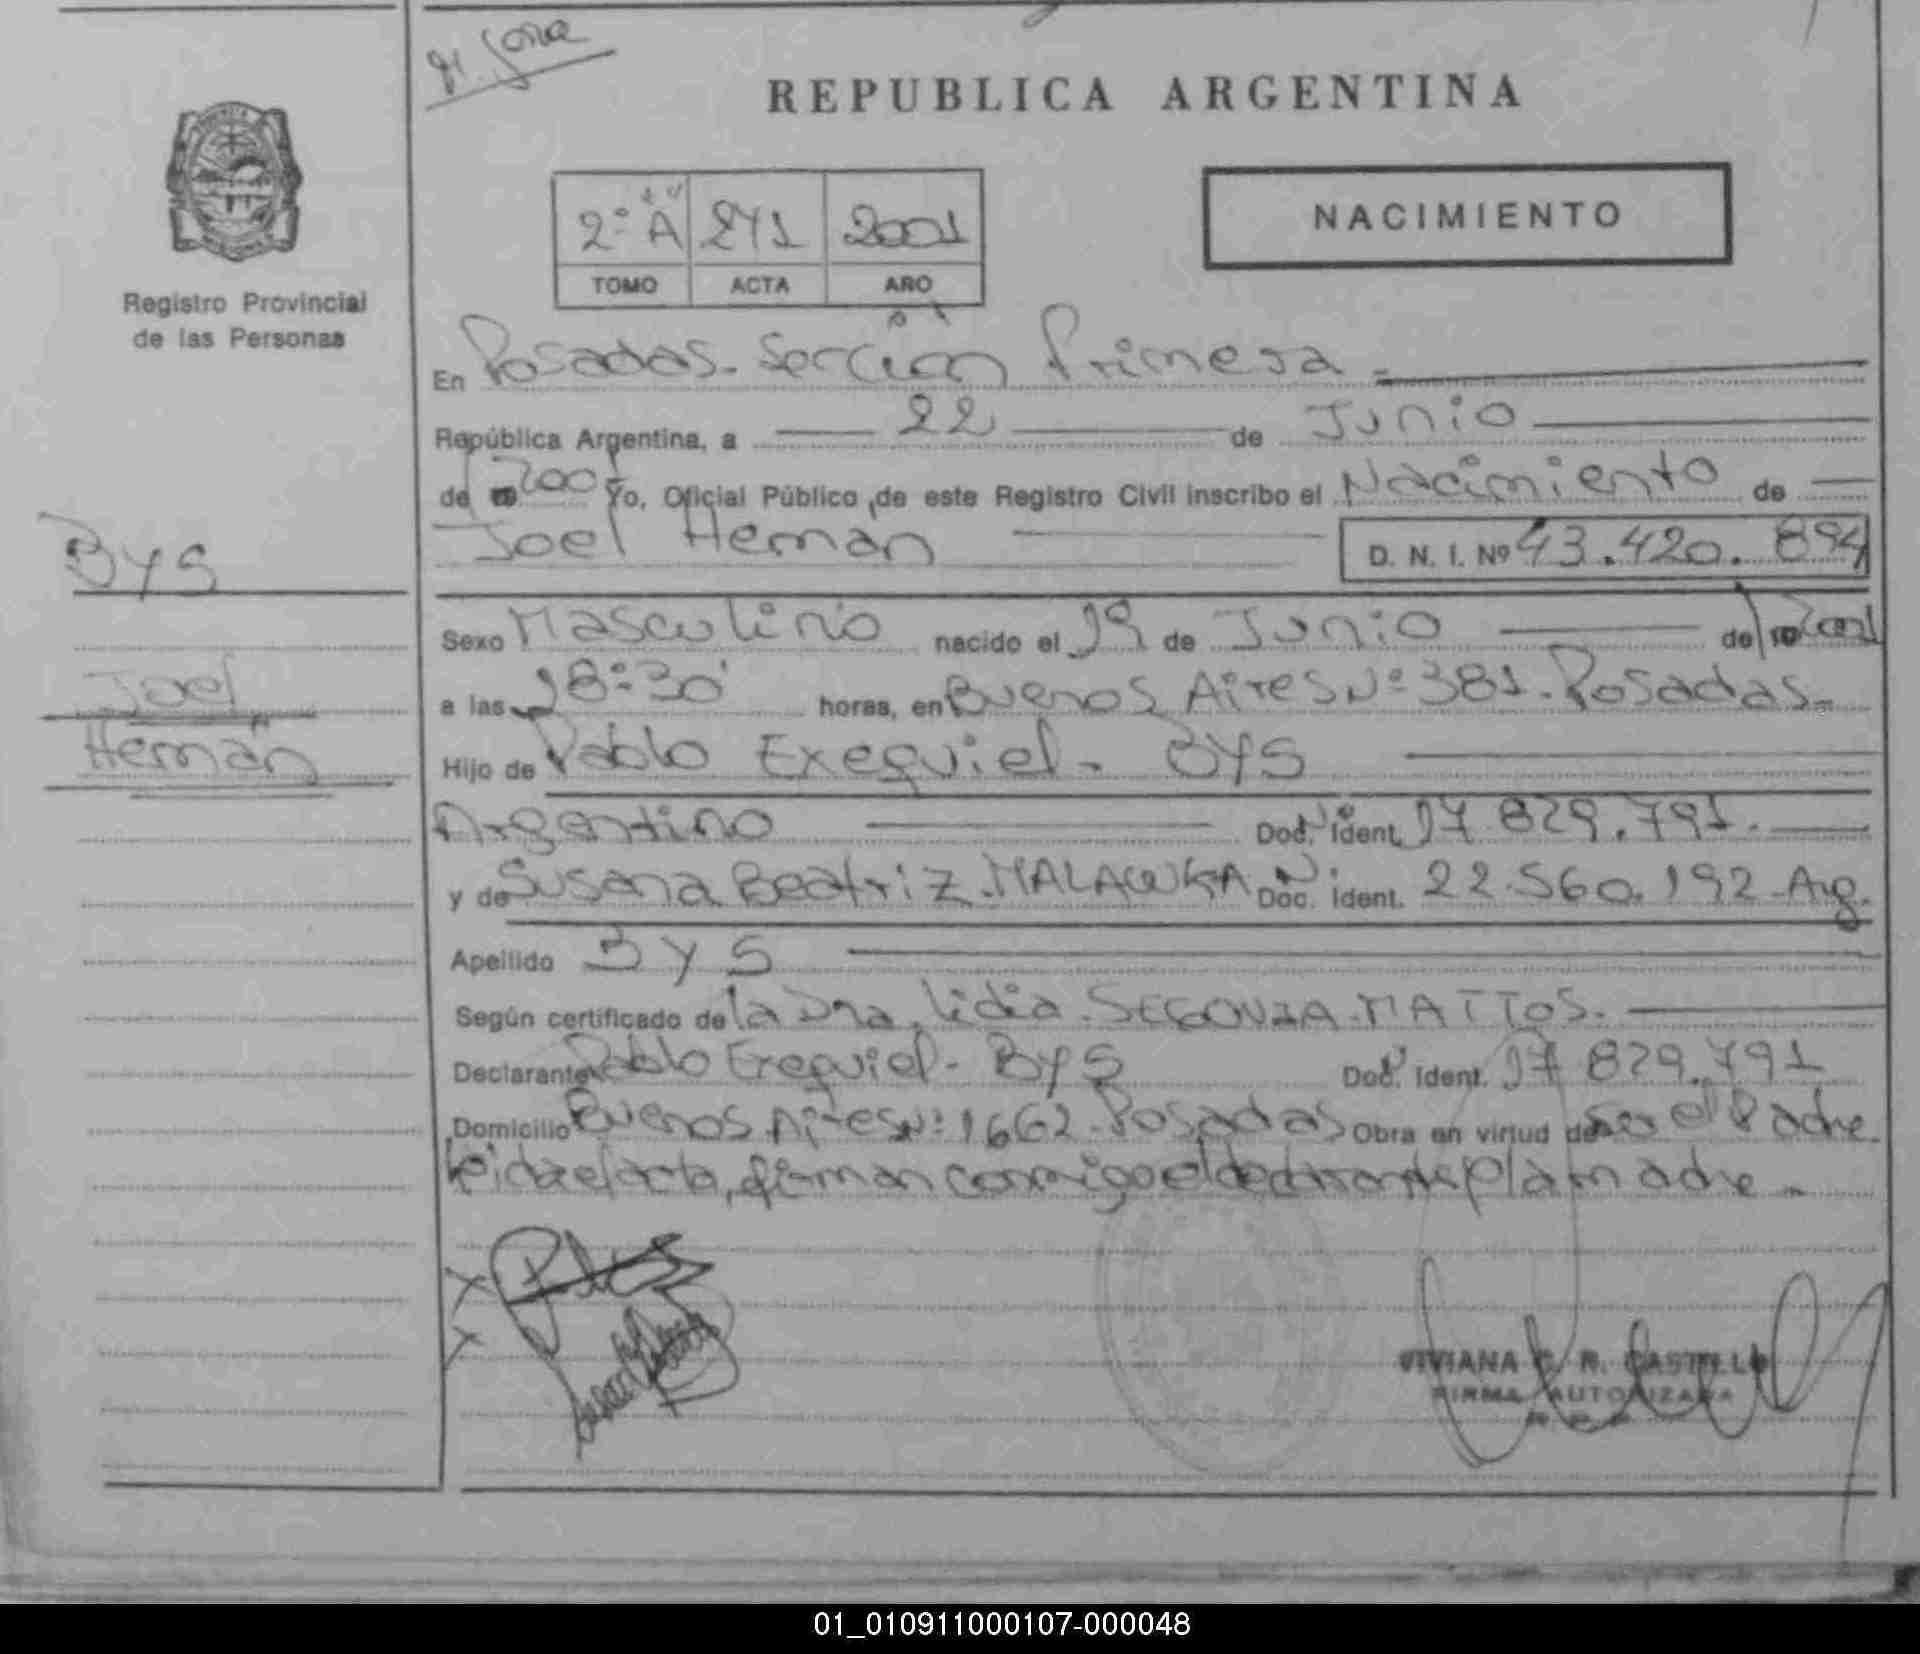 REPUBLICA ARGENTINA
2º A 271 2001
TOMO ACTA AÑO
NACIMIENTO
Registro Provincial
de las Personas
En Posadas - Sección Primera.
República Argentina, a 22 de Junio
de 2001 Yo, Oficial Público de este Registro Civil inscribo el Nacimiento de
Joel Hernan D. N. I. Nº 43.420.894
BYS
Joel
Hernán
Sexo Masculino nacido el 19 de Junio de 2001
a las 18:30 horas, en Buenos Aires Nº 381 - Posadas -
Hijo de Pablo Exequiel - BYS
Argentino Doc. Ident. 17.829.791.
y de Susana Beatriz - MALAWKA Doc. Ident. 22.560.192 - Arg.
Apellido BYS
Según certificado de la Dra. Lidia - SEGOVIA - MATTOS.
Declarante Pablo Exequiel - BYS Doc. Ident. 17 829.791
Domicilio Buenos Aires Nº 1662 - Posadas Obra en virtud de ser el Padre
leida el acta, firman conmigo el declarante y la madre -
VIVIANA C. R. CASTILLO
FIRMA AUTORIZADA
01_010911000107-000048